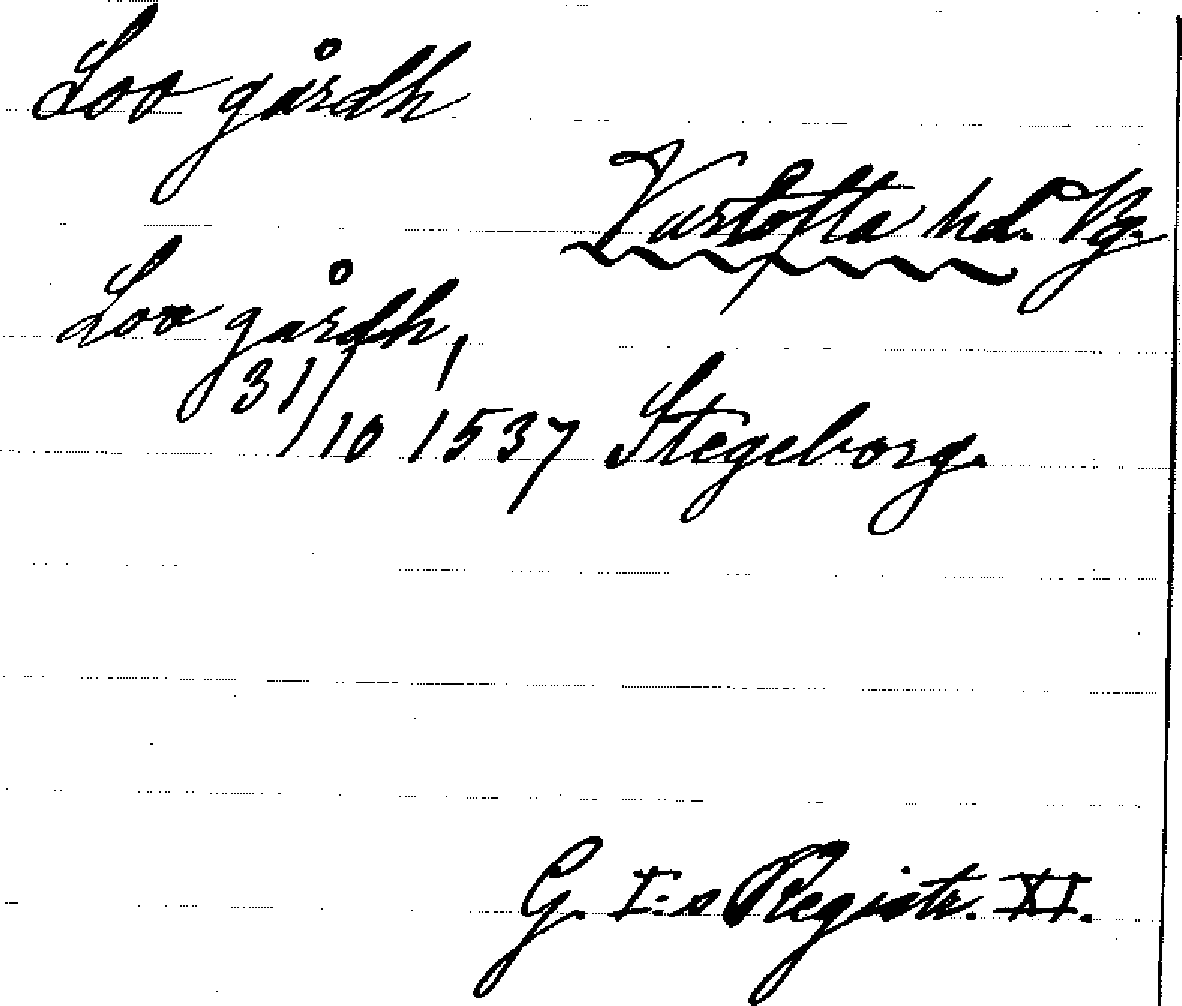 Loo gårdh
Vartofta hd. Vg.
Loo gårdh,
31/10 1537 Stegeborg.
G. I:s Registr. XI.